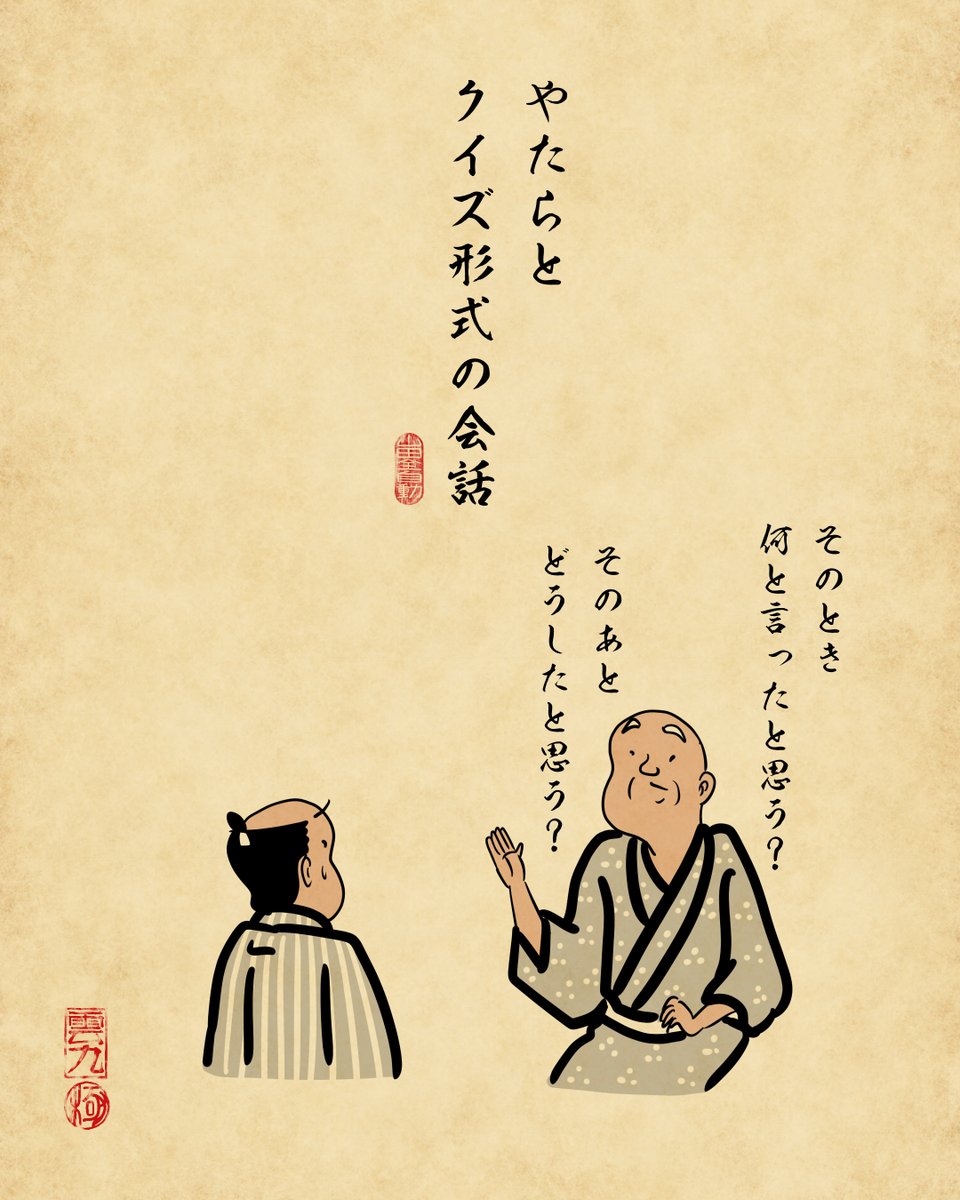 やたらと
クイズ形式の会話
そのとき
何と言ったと思う?
そのあと
どうしたと思う?